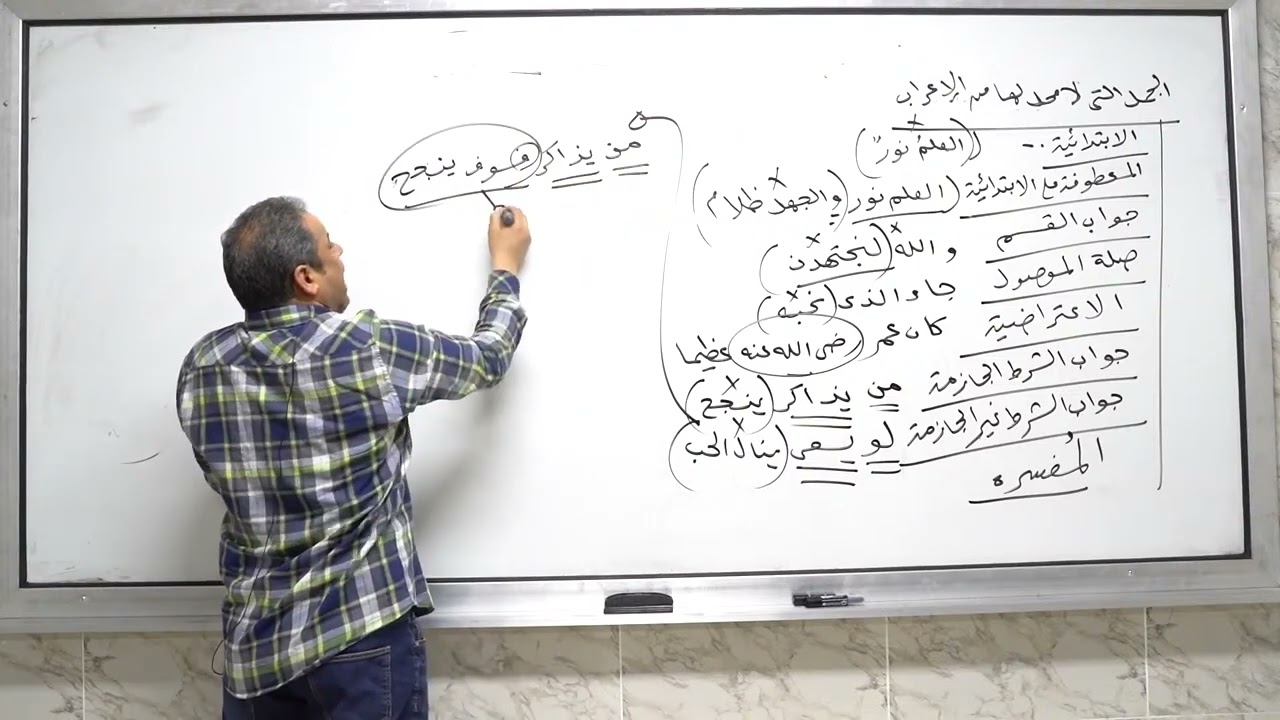 الجمل التي لا محل لها من الإعراب
الابتدائية :- (العلم نورٌ)
المعطوفة على الابتدائية (العلم نور (والجهل ظلام)
جواب القسم والله (لنجتهدن)
صلة الموصول جاء الذي (نحبه)
الاعتراضية كان عمر (رضى الله عنه) عظيما
جواب الشرط الجازمة من يذاكر (ينجح)
جواب الشرط غير الجازمة لو يسعى (ينال الحب)
المُفسره
من يذاكر فسوف ينجح